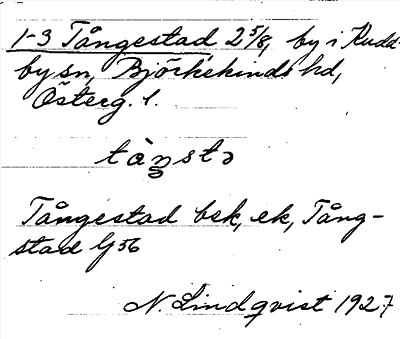 1-3 Tångestad 2 5/8, by i Kudd-
by sn, Björkekinds hd,
Österg. l.
tåŋstə
Tångestad bek, ek, Tång-
stad G 56
N. Lindqvist 1927